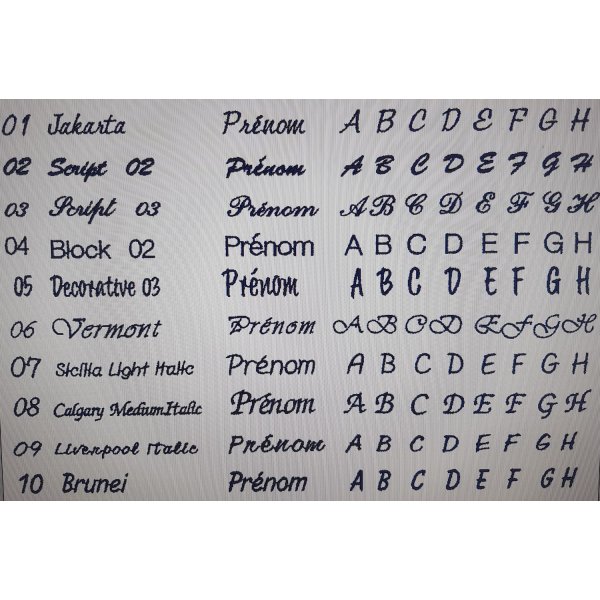 01 Jakarta Prénom A B C D E F G H
02 Script 02 Prénom A B C D E F G H
03 Script 03 Prénom A B C D E F G H
04 Block 02 Prénom A B C D E F G H
05 Decorative 03 Prénom A B C D E F G H
06 Vermont Prénom A B C D E F G H
07 Sicilia Light Italic Prénom A B C D E F G H
08 Calgary MediumItalic Prénom A B C D E F G H
09 Liverpool Italic Prénom A B C D E F G H
10 Brunei Prénom A B C D E F G H